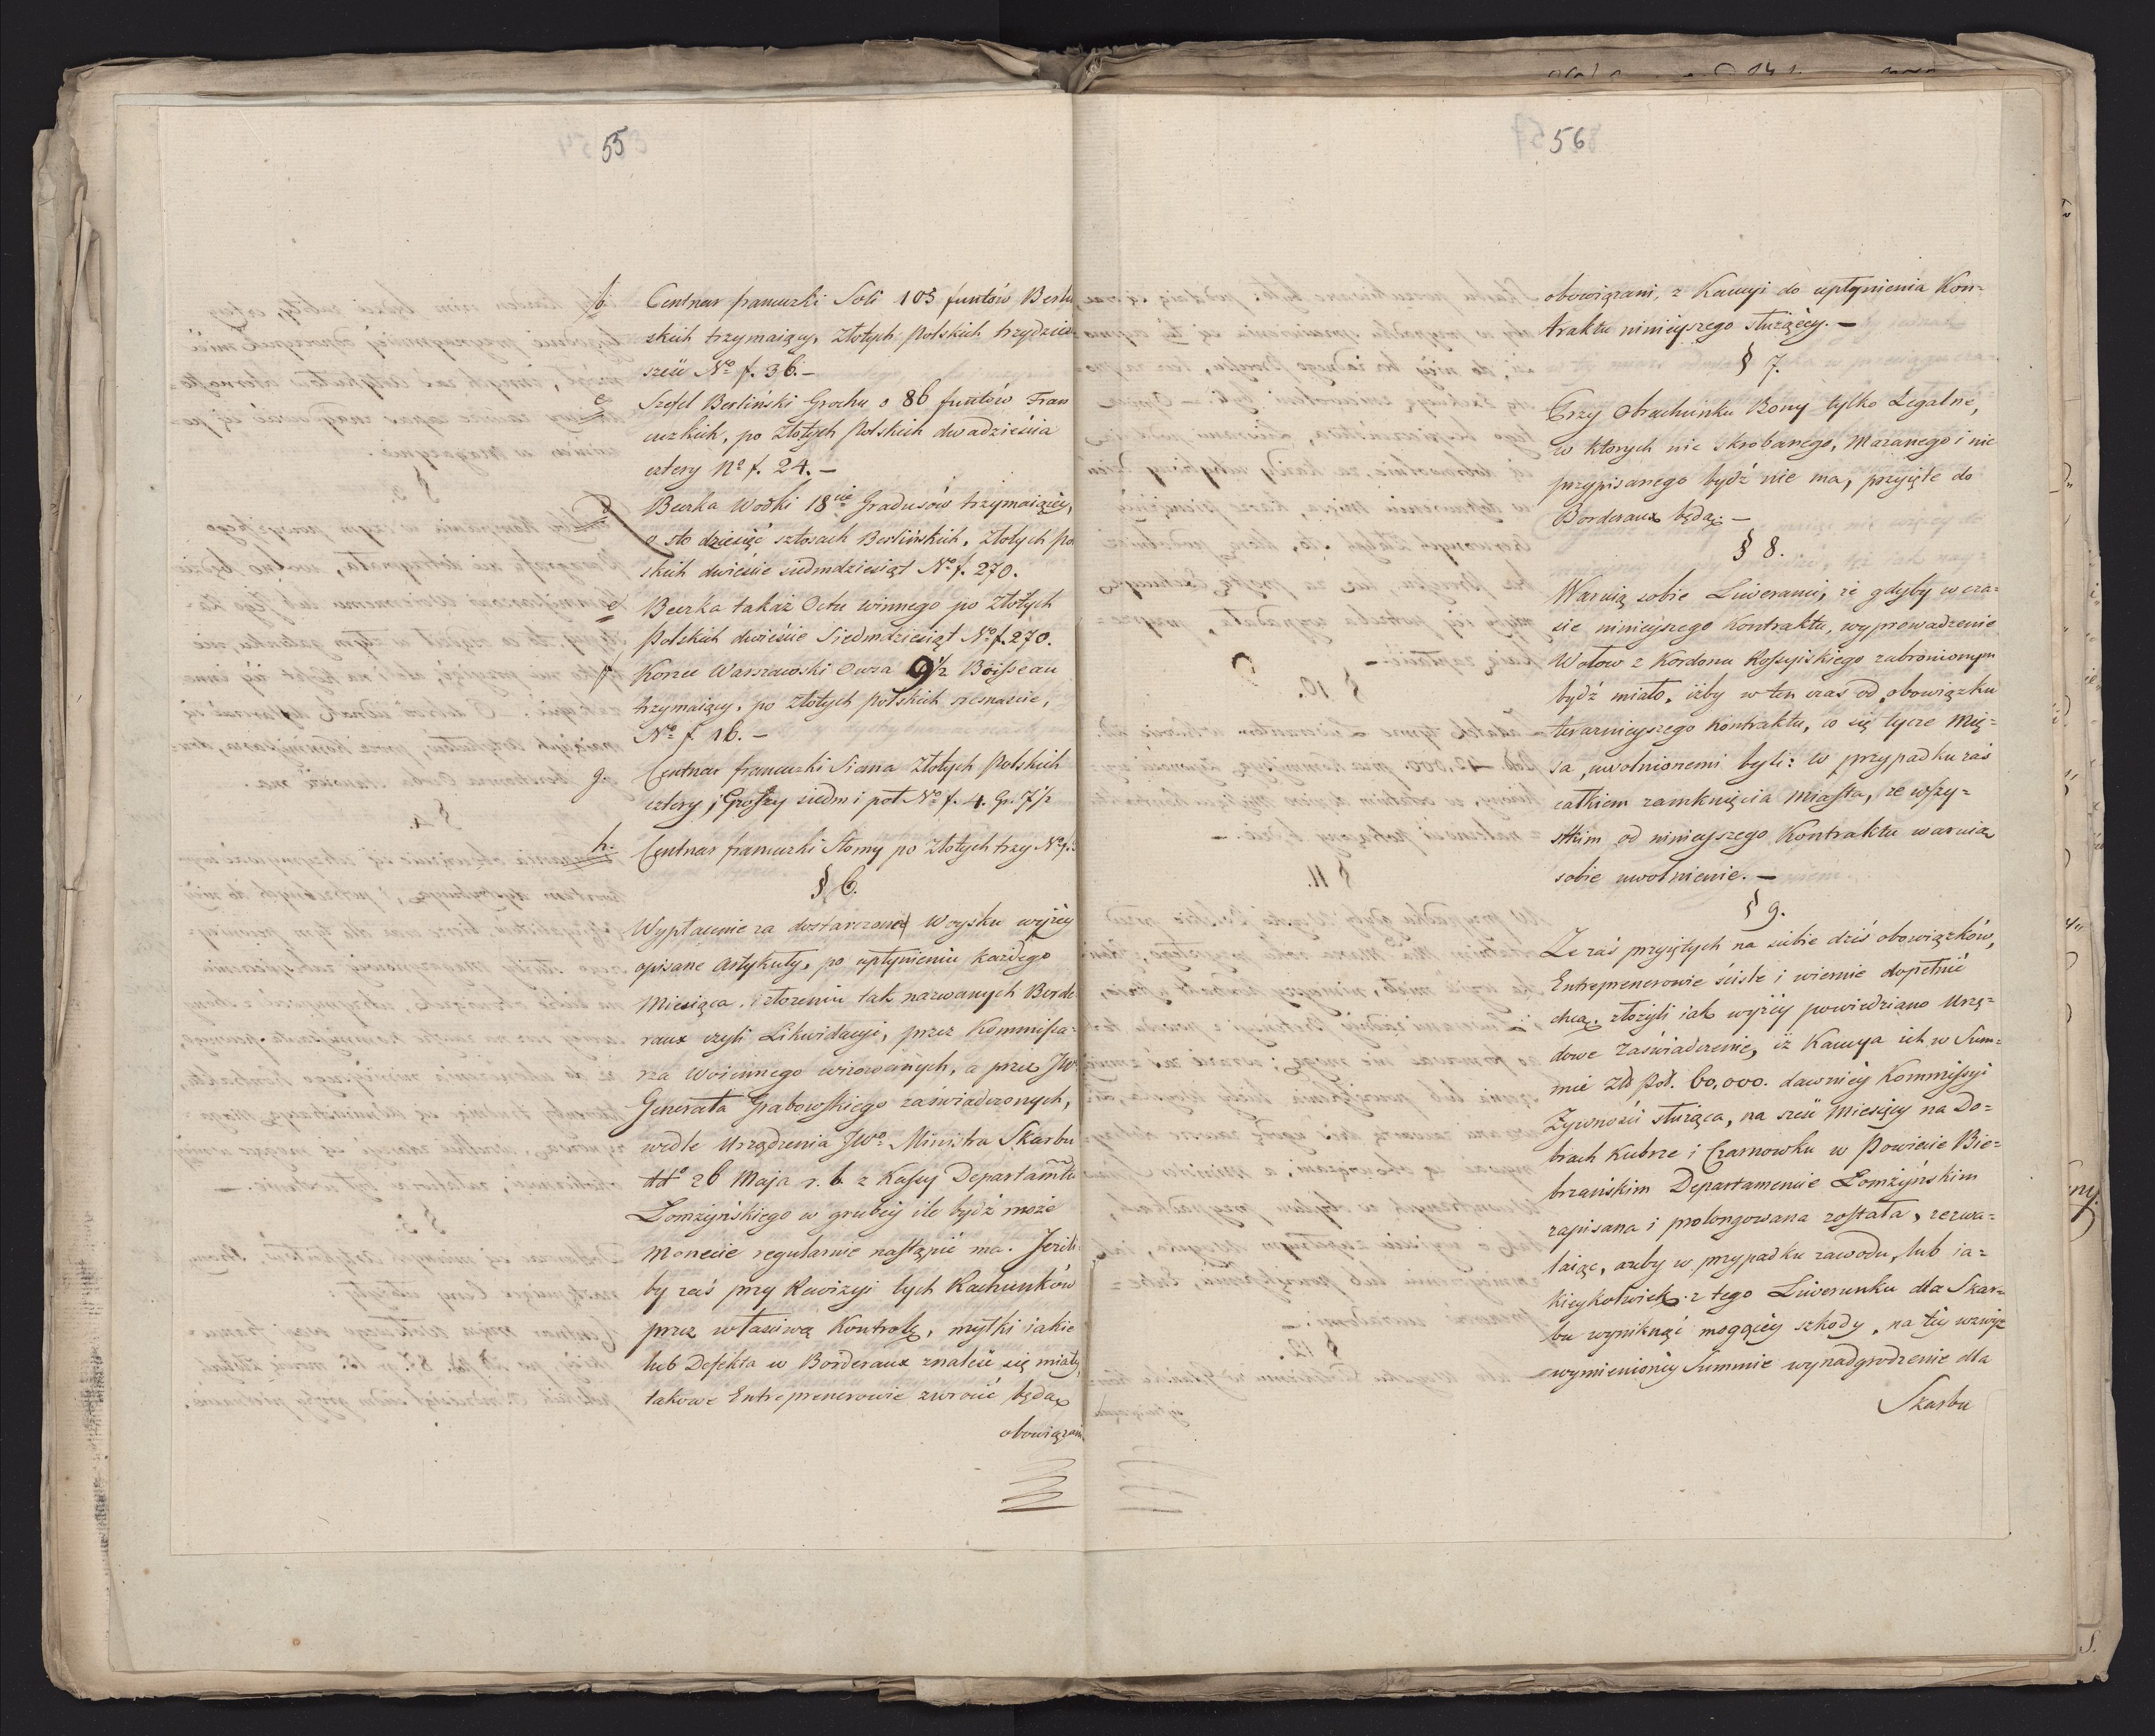 55
b. Centnar francuzki Soli 105 funtów Berliń
skich trzymaiący, Złotych Polskich trzydzieś
sześć No f. 36.—
c. Szefel Berliński Grochu o 86 funtów Fran
cuzkich, po Złotych Polskich dwadzieścia
cztery No f. 24.—
d Beczka Wodki 18cie Gradusów trzymaiącey,
o sto dziesięć sztosach Berlińskich, Złotych po
skich dwieście siedmdziesiąt No f. 270.
e Beczka takaż Octu winnego po Złotych
Polskich dwieście Siedmdziesiąt No f. 270.
f Korzec Warszawski Owsa 9 1/2 Boisseau
trzymaiący, po złotych polskich szesnaście,
No f. 16.—
g. Centnar francuzki Siana Złotych Polskich
cztery, Groszy siedm i poł No f. 4. Gr. 7 1/2
h. Centnar francuzki Słomy po Złotych trzy No f.
§ 6.
Wypłacenie za dostarczone Woysku wyżey
opisane Artykuły, po upłynieniu każdego
Miesiąca, i złożeniu tak nazwanych Borde
raux czyli Likwidacyi, przez Kommissa=
rza Woiennego wizowanych, a przez JW
Generała Grabowskiego zaświadczonych,
wedle Urządzenia JWo Ministra Skarbu
ddo 26 Maja r. b. z Kassy Departamtu
Łomżyńskiego w grubey ile bydź może
Monecie regularnie nastąpić ma. Jeżeli
by zaś przy Rewizyi tych Rachunków
przez właściwą Kontrolę, myłki iakie
lub Defekta w Borderaux znaleść się miały,
takowe Entreprenerowie zwrocić będą
obowiązani
56
obowiązani, z Kaucyi do upłynienia Kon=
traktu ninieyszego służącey.—
§ 7.
Przy Obrachunku Bony tylko Legalne,
w ktorych nic skrobanego, mazanego i nic
przypisanego bydź nie ma, przyięte do
Borderaux będą.—
§ 8.
Waruią sobie Liweranci, że gdyby w cza=
sie ninieyszego Kontraktu, wyprowadzenie
Wołow z Kordonu Rossyiskiego zabronionym
bydź miało, iżby w ten czas od obowiązku
teraźnieyszego Kontraktu, co się tycze Mię=
sa, uwolnionemi byli: w przypadku zaś
całkiem zamknięcia Miasta, ze wszy=
stkim od ninieyszego Kontraktu waruią
sobie uwolnienie.—
§ 9.
Że zaś przyiętych na siebie dziś obowiązków,
Entreprenerowie ściśle i wiernie dopełnić
chcą, złożyli iak wyżey powiedziano Urzę=
dowe Zaświadczenie, iż Kaucya ich w Sum=
mie Złt Pol. 60,000. dawniey Kommissyi
Żywności służąca, na sześć Miesięcy na Do=
brach Kubrze i Czarnowku w Powiecie Bie=
brzańskim Departamencie Łomżyńskim
zapisana i prolongowana została, zezwa=
laiąc, ażeby w przypadku zawodu, lub ia=
kieykolwiek z tego Liwerunku dla Skar=
bu wyniknąć mogącey szkody, na tey wzwyż
wymienioney Summie wynadgrodzenie dla
Skarbu